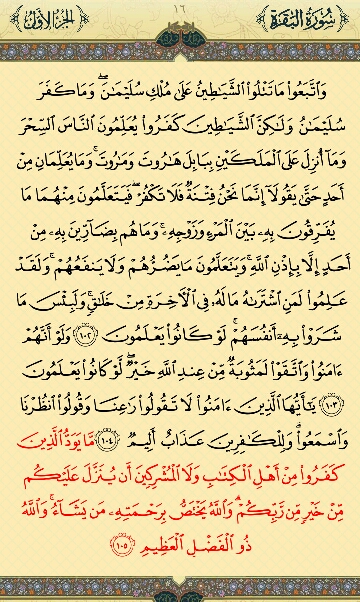 سُورَةُ البَقَرَةِ ١٦ الجُزءُ الأَوَّلُ
وَٱتَّبَعُوا۟ مَا تَتْلُوا۟ ٱلشَّيَـٰطِينُ عَلَىٰ مُلْكِ سُلَيْمَـٰنَ ۖ وَمَا كَفَرَ
سُلَيْمَـٰنُ وَلَـٰكِنَّ ٱلشَّيَـٰطِينَ كَفَرُوا۟ يُعَلِّمُونَ ٱلنَّاسَ ٱلسِّحْرَ
وَمَآ أُنزِلَ عَلَى ٱلْمَلَكَيْنِ بِبَابِلَ هَـٰرُوتَ وَمَـٰرُوتَ ۚ وَمَا يُعَلِّمَانِ مِنْ
أَحَدٍ حَتَّىٰ يَقُولَآ إِنَّمَا نَحْنُ فِتْنَةٌ فَلَا تَكْفُرْ ۖ فَيَتَعَلَّمُونَ مِنْهُمَا مَا
يُفَرِّقُونَ بِهِۦ بَيْنَ ٱلْمَرْءِ وَزَوْجِهِۦ ۚ وَمَا هُم بِضَآرِّينَ بِهِۦ مِنْ
أَحَدٍ إِلَّا بِإِذْنِ ٱللَّهِ ۚ وَيَتَعَلَّمُونَ مَا يَضُرُّهُمْ وَلَا يَنفَعُهُمْ ۚ وَلَقَدْ
عَلِمُوا۟ لَمَنِ ٱشْتَرَىٰهُ مَا لَهُۥ فِى ٱلْـَٔاخِرَةِ مِنْ خَلَـٰقٍ ۚ وَلَبِئْسَ مَا
شَرَوْا۟ بِهِۦٓ أَنفُسَهُمْ ۚ لَوْ كَانُوا۟ يَعْلَمُونَ ﴿١٠٢﴾ وَلَوْ أَنَّهُمْ
ءَامَنُوا۟ وَٱتَّقَوْا۟ لَمَثُوبَةٌ مِّنْ عِندِ ٱللَّهِ خَيْرٌ ۖ لَّوْ كَانُوا۟ يَعْلَمُونَ
﴿١٠٣﴾ يَـٰٓأَيُّهَا ٱلَّذِينَ ءَامَنُوا۟ لَا تَقُولُوا۟ رَٰعِنَا وَقُولُوا۟ ٱنظُرْنَا
وَٱسْمَعُوا۟ ۗ وَلِلْكَـٰفِرِينَ عَذَابٌ أَلِيمٌ ﴿١٠٤﴾ مَّا يَوَدُّ ٱلَّذِينَ
كَفَرُوا۟ مِنْ أَهْلِ ٱلْكِتَـٰبِ وَلَا ٱلْمُشْرِكِينَ أَن يُنَزَّلَ عَلَيْكُم
مِّنْ خَيْرٍ مِّن رَّبِّكُمْ ۗ وَٱللَّهُ يَخْتَصُّ بِرَحْمَتِهِۦ مَن يَشَآءُ ۚ وَٱللَّهُ
ذُو ٱلْفَضْلِ ٱلْعَظِيمِ ﴿١٠٥﴾